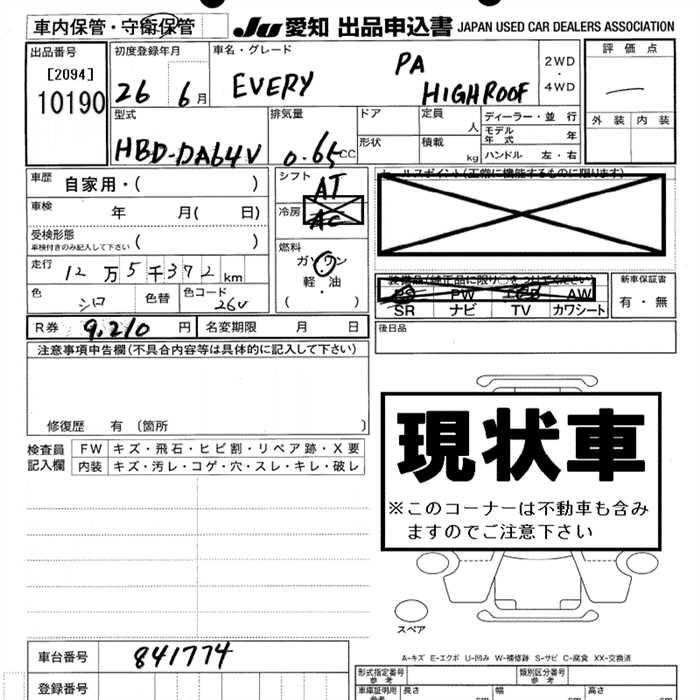 車内保管・守衛保管
JU 愛知 出品申込書 JAPAN USED CAR DEALERS ASSOCIATION
出品番号
[2094]
10190
初度登録年月
26 6月
車名・グレード
EVERY PA
HIGHROOF
2WD
・
4WD
評価点
外装 内装
型式
HBD-DA64V
排気量
0.65CC
ドア
定員
人
形状
積載
kg
ディーラー・並行
モデル年式 年
ハンドル 左・右
車歴 自家用・( )
車検 年 月( 日)
受検形態
車検付きのみ記入して下さい ( )
走行 12万5千372km
色 シロ
色替
色コード 26U
シフト AT
冷房 AC
燃料
ガソリン
軽・油
( )
R券 9,210 円
名変期限 月 日
セールスポイント(正常に機能するものに限ります)
装備品(純正品に限り○をつけてください)
PS PW AW
SR ナビ TV カワシート
新車保証書
有・無
後日品
注意事項申告欄(不具合内容等は具体的に記入して下さい)
修復歴 有〔箇所 〕
検査員記入欄
FW キズ・飛石・ヒビ割・リペア跡・X要
内装 キズ・汚レ・コゲ・穴・スレ・キレ・破レ
現状車
※このコーナーは不動車も含み
ますのでご注意下さい
スペア
A-キズ E-エクボ U-凹み W-補修跡 S-サビ C-腐食 XX-交換済
車台番号 841774
登録番号
形式指定番号
参考
類別区分番号
参考
車庫証明用
参考
長さ cm
幅 cm
高さ cm